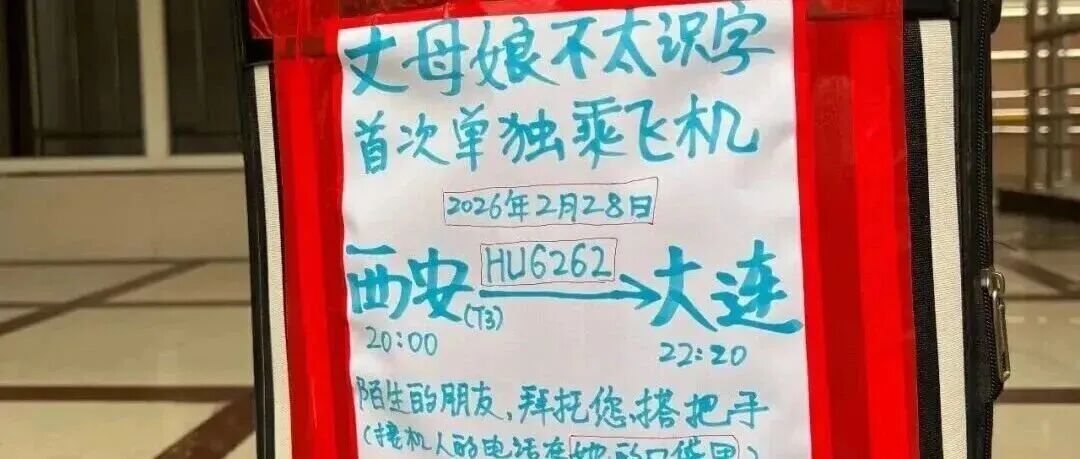 丈母娘不太识字
首次单独乘飞机
2026年2月28日
西安(T3) HU6262 → 大连
20:00 22:20
陌生的朋友,拜托您搭把手
(接机人的电话在她的口袋里)